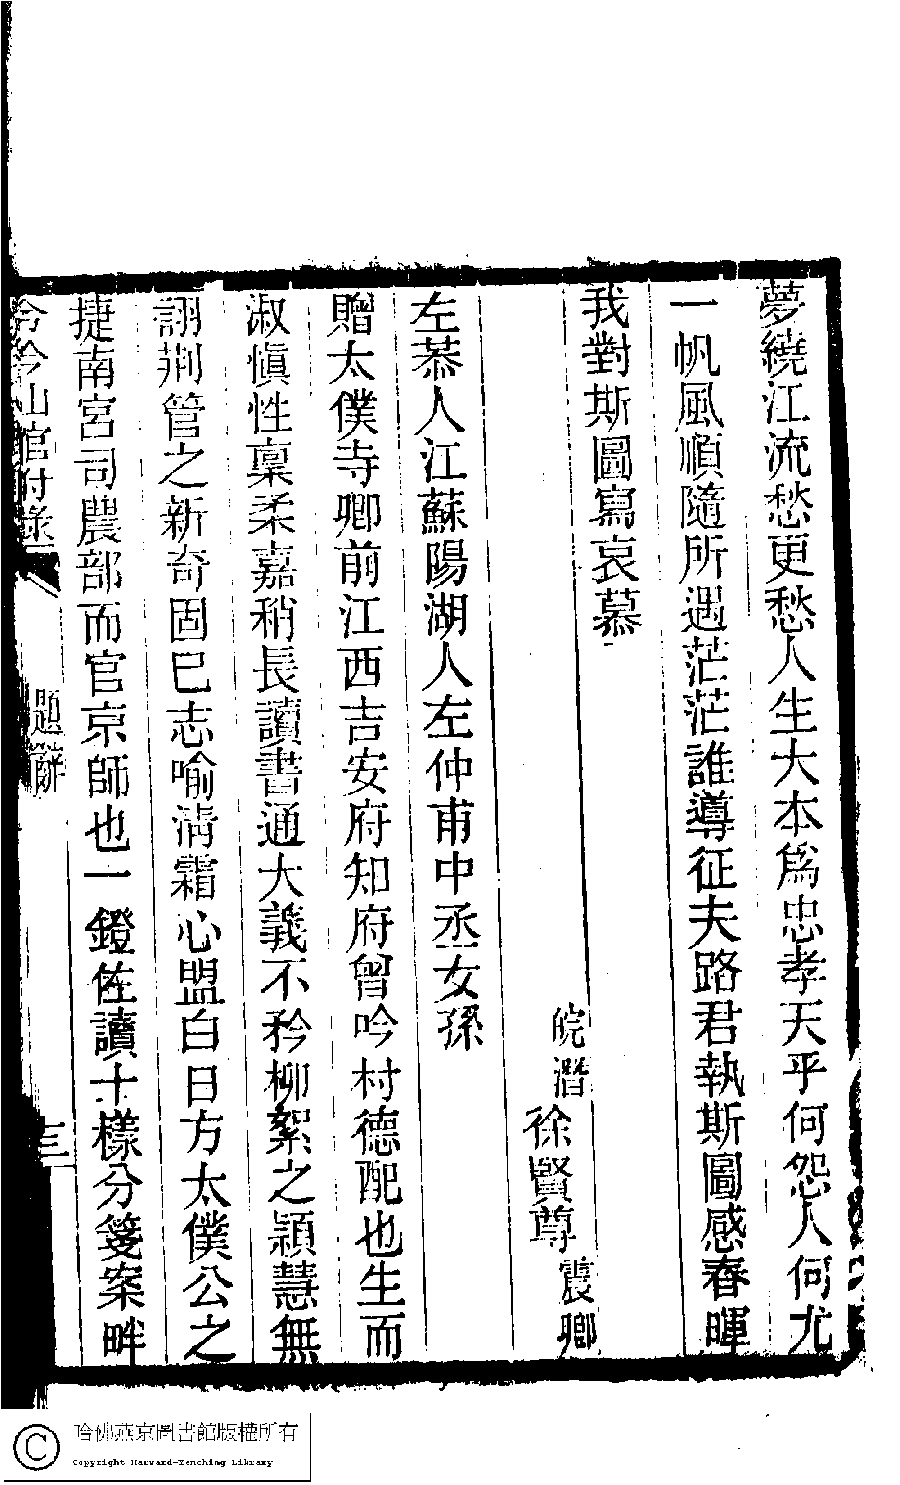 夢繞江流愁更愁人生大本爲忠孝天乎何怨人何尤
一帆風順隨所遇茫茫誰導征夫路君執斯圖感春暉
我對斯圖寫哀慕
皖潛徐賢尊震卿
左恭人江蘇陽湖人左仲甫中丞女孫
贈太僕寺卿前江西吉安府知府曾吟村德配也生而
淑愼性稟柔嘉稍長讀書通大義不矜柳絮之穎慧無
詡荆管之新奇固已志喻淸霜心盟白日方太僕公之
捷南宮司農部而官京師也一鐙佐讀十樣分箋案畔
泠泠山館附錄
題辭
三
哈佛燕京圖書館版權所有
Copyright Harvard-Yenching Library